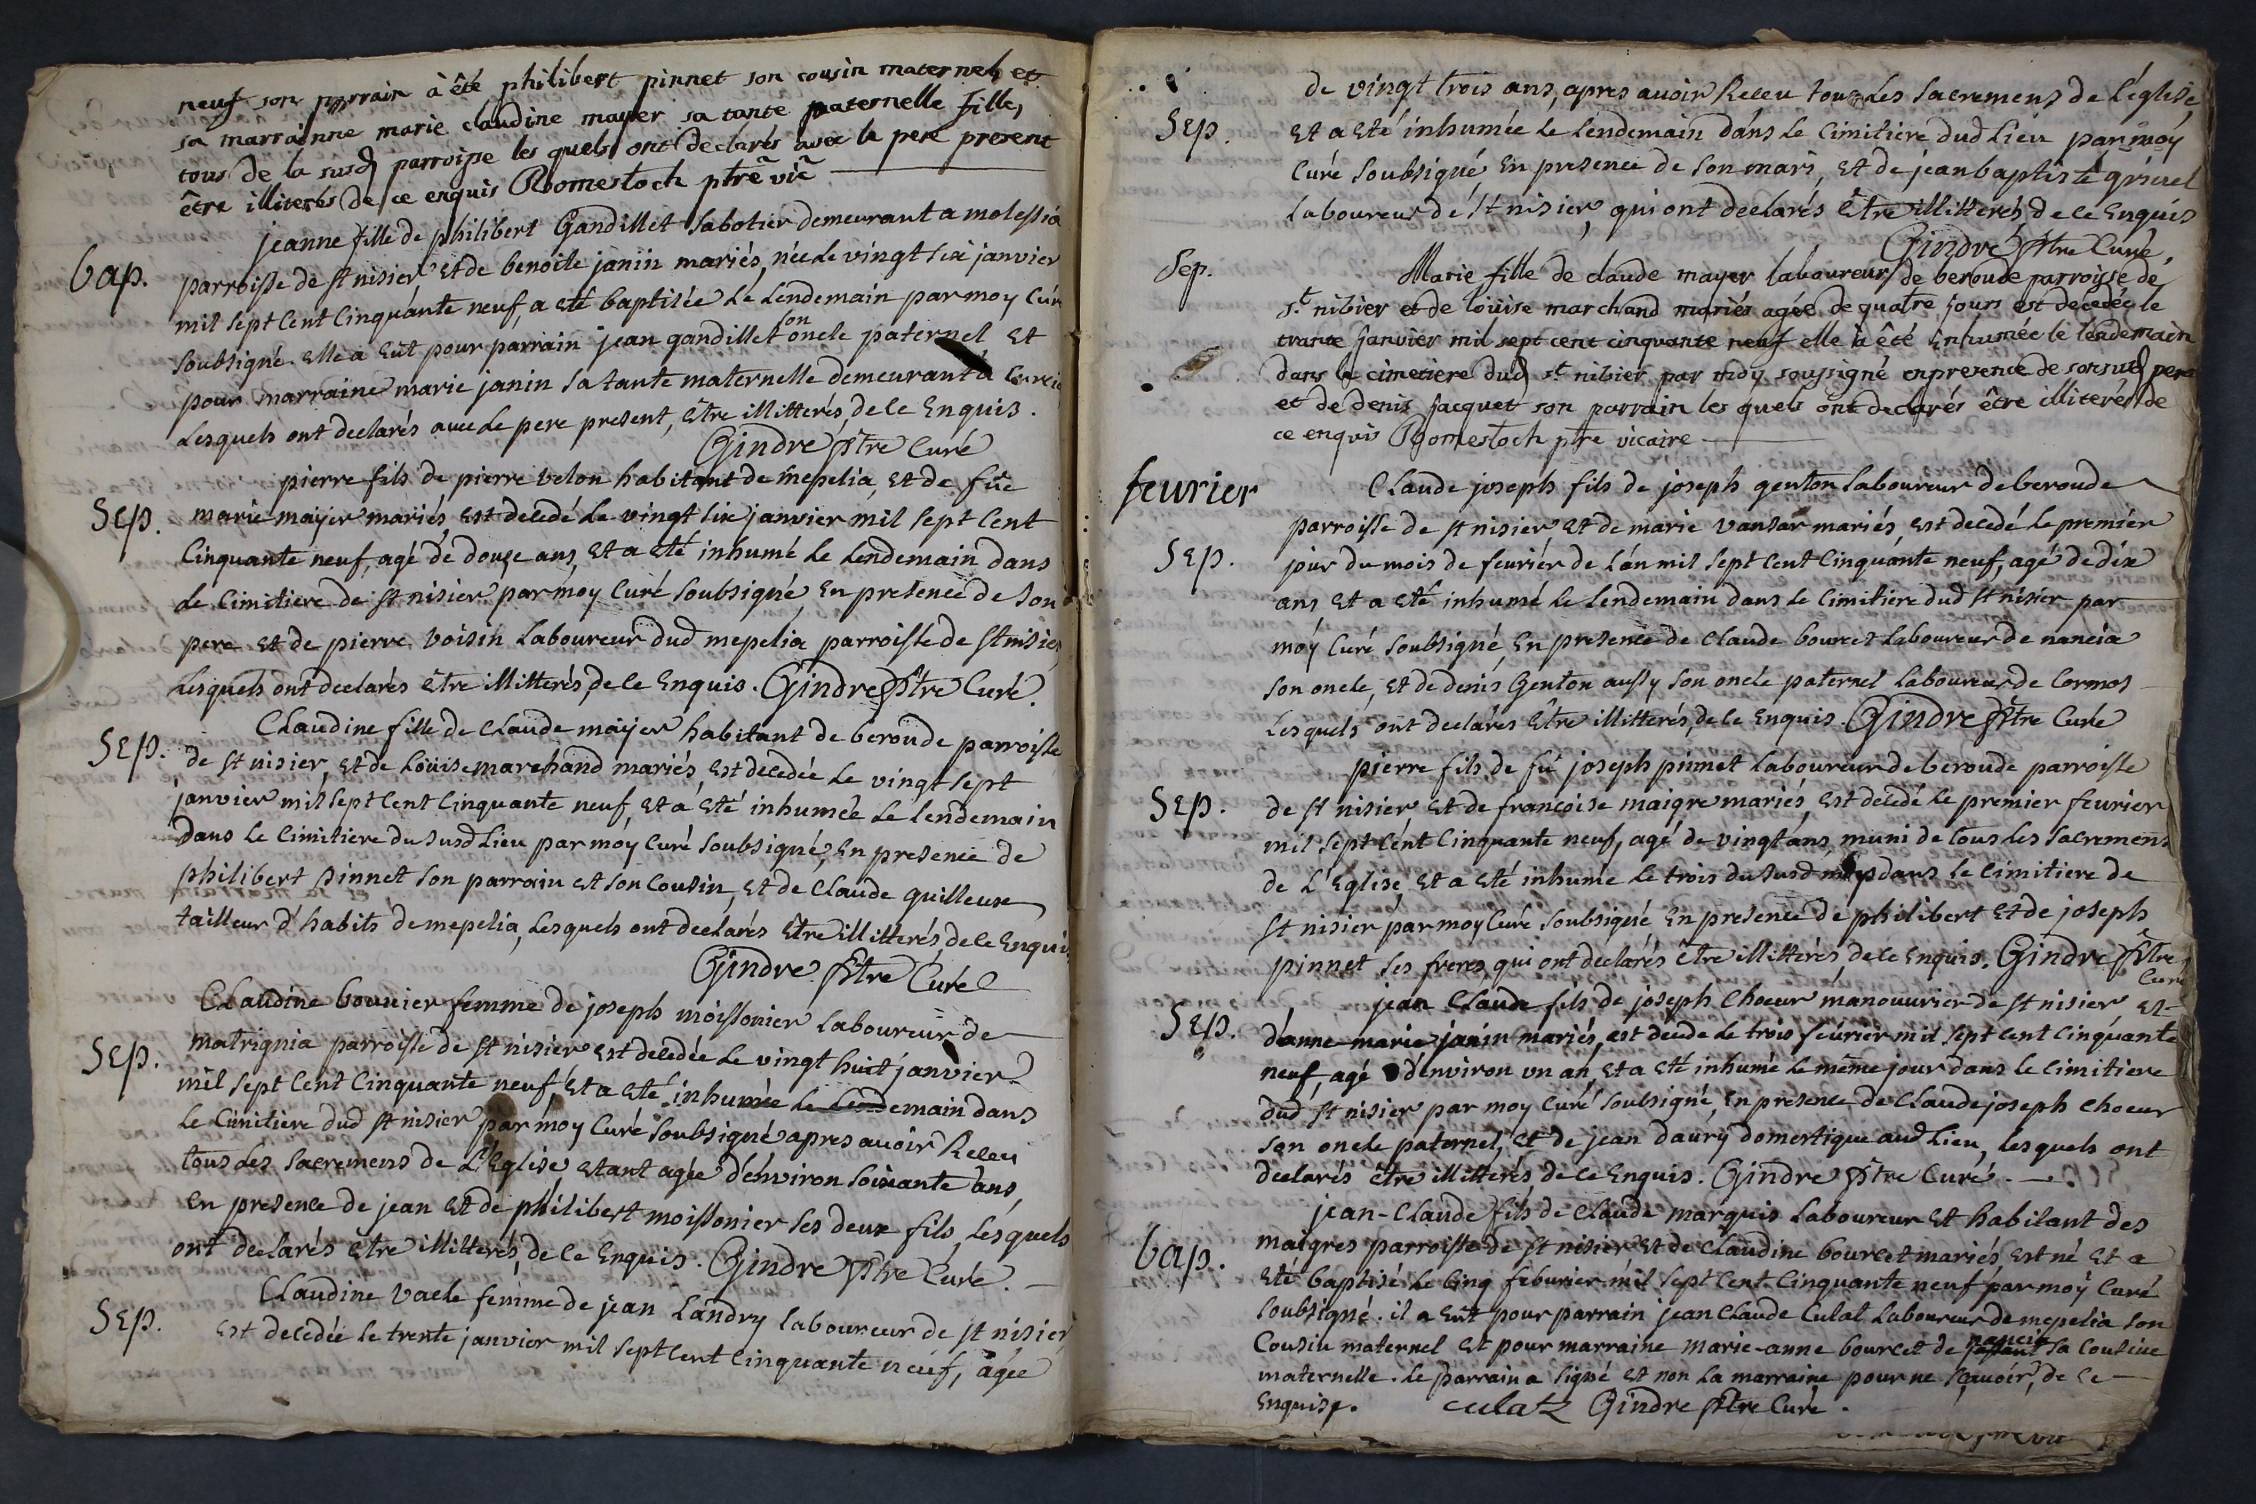 neuf son parrain à êté philibert pinnet son cousin maternel et
sa marrainne marie claudine mayer sa tante paternelle fille,
tous de la susd parroisse les quels ont declarés avec le pere present
être illiterés de ce enquis Romestoch ptre vic
jeanne fille de philibert Gandillet Sabotier demeurant a molessia
bap.
parroisse de st nisier, et de benoite janin mariés, née le vingt six janvier
mil sept cent cinquante neuf, a eté baptisée le lendemain par moy Curé
soubsigné. elle a eut pour parrain jean gandillet son oncle paternel et
pour marraine marie janin sa tante maternelle demeurant à
lesquels ont declarés avec le pere present, être illitterés, de ce enquis.
Gindre ptre Curé
pierre fils de pierre velon habitant de mepelia, et de fue
Sep.
marie mayer mariés est decedé le vingt six janvier mil sept cent
cinquante neuf, agé de douze ans, et a eté inhumé le lendemain dans
le cimitiere de st nisier par moy Curé soubsigné, en presence de son
pere et de pierre voisin laboureur dud mepelia parroisse de st nisier,
lesquels ont declarés etre illitterés, de ce enquis. Gindre ptre Curé.
Claudine fille de claude mayer habitant de beroude parroisse
Sep.
de st nisier, et de Loüise marchand mariés, est decedée le vingt sept
janvier mil sept cent cinquante neuf, et a eté inhumée le lendemain
dans le cimitiere du susd lieu par moy Curé soubsigné, en presence de
philibert pinnet son parrain et son cousin, et de claude guilleux
tailleur d'habits de mepelia, lesquels ont declarés être illitterés de ce enquis.
Gindre ptre Curé
Claudine bouvier femme de joseph moissonier laboureur de
Sep.
matrignia parroisse de st nisier est decedée le vingt huit janvier
mil sept cent cinquante neuf, et a eté inhumée le lendemain dans
le cimitiere dud st nisier par moy Curé soubsigné apres avoir Receu
tous les sacremens de L'Eglise, etant agée d'environ soixante ans,
en presence de jean et de philibert moissonier ses deux fils, lesquels
ont declarés etre illitterés, de ce enquis. Gindre ptre Curé.
Claudine vacle femme de jean Landry laboureur de st nisier
Sep.
est decedée le trente janvier mil sept cent cinquante neuf, agée
de vingt trois ans, apres avoir Receu tous les sacremens de L'église,
Sep.
et a eté inhumée le lendemain dans le cimitiere dud lieu par moy
Curé soubsigné en presence de son mari, et de jean baptiste gruel
laboureur de st nisier, qui ont declarés être illitterés, de ce enquis
Gindre ptre Curé,
Sep.
Marie fille de claude mayer laboureur de beroude parroisse de
st nibier et de loüise marchand mariés agée de quatre jours est decedée le
trante janvier mil sept cent cinquante neuf elle à êté enhumée le lendemain
dans le cimetiere dud st nibier par moy soussigné en presence de son sud pere
et de denis jacquet son parrain les quels ont declarés être illiterés de
ce enquis Romestoch ptre vicaire
fevrier
Claude joseph fils de joseph genton laboureur de beroude
parroisse de st nisier, et de marie vansar mariés, est decedé le premier
Sep.
jour du mois de fevriér de l'an mil sept cent cinquante neuf, agé de dix
ans et a eté inhumé le lendemain dans le cimitiere dud st nisier par
moy Curé soubsigné, en presence de claude bourcet laboureur de nancia
son oncle, et de denis Genton aussy son oncle paternel laboureur de Cormos
lesquels ont declarés être illitterés, de ce enquis. Gindre ptre Curé
pierre fils de fu joseph pinnet laboureur de beroude parroisse
Sep.
de st nisier, et de francoise maigre mariés, est decedé le premier fevrier
mil sept cent cinquante neuf, agé de vingt ans, muni de tous les sacremens
de L'Eglise, et a eté inhumé le trois du susd moys dans le cimitiere de
st nisier par moy Curé soubsigné, en presence de philibert et de joseph
pinnet ses freres qui ont declarés être illitterés de ce enquis. Gindre ptre
Curé
jean Claude fils de joseph Choeur manouvrier de st nisier et
Sep.
d'anne marie janin mariés, est decede le trois fevrier mil sept cent cinquante
neuf, agé d'environ un an, et a eté inhumé le même jour dans le cimitiere
dud st nisier par moy Curé soubsigné, en presence de Claude joseph Choeur
son oncle paternel, et de jean daury domestique aud lieu, lesquels ont
declarés être illitterés de ce enquis. Gindre ptre Curé.
jean-Claude fils de claude marquis laboureur et habitant des
bap.
maigres parroisse de st nisier et de claudine bourcet mariés, est né et a
eté baptisé le cinq feburier mil sept cent cinquante neuf par moy Curé
soubsigné. il a eut pour parrain jean Claude Culat laboureur de mepelia son
Cousin maternel et pour marraine marie-anne bourcet de nancia sa cousine
maternelle. le parrain a signé et non la marraine pour ne sçavoir, de ce
enquise. culat Gindre ptre Curé.